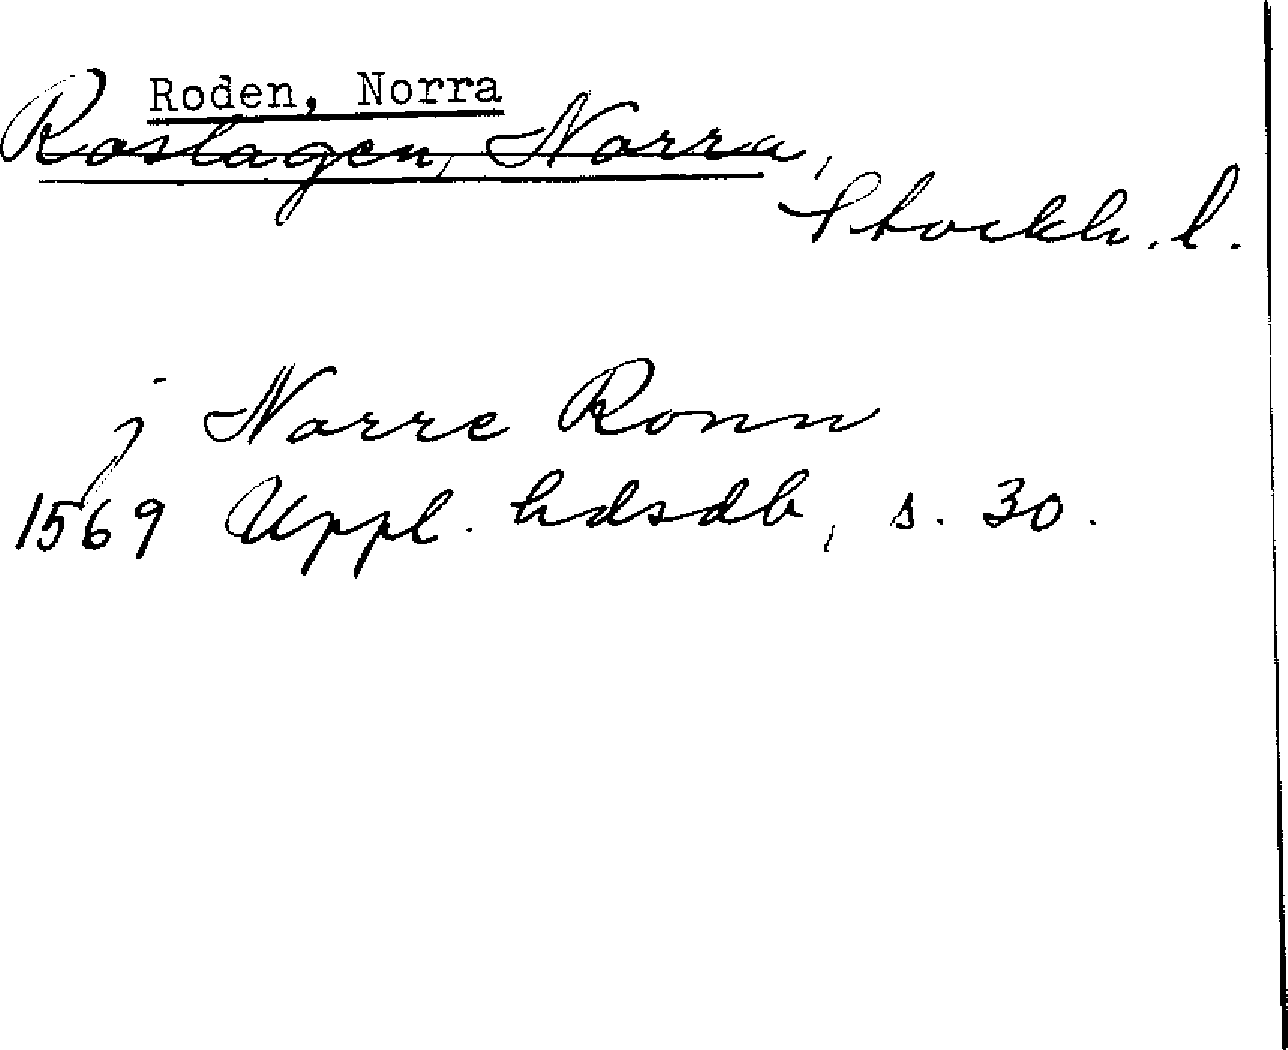 Roden, Norra
Roslagen, Norra,
Stockh. l.
j Norre Ronn
1569 Uppl. hdsdb, s. 30.